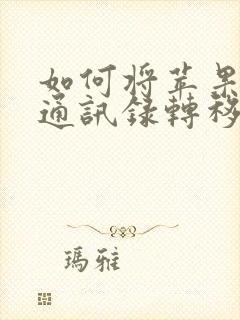 如何将苹果
通訊錄轉移
瑪雅